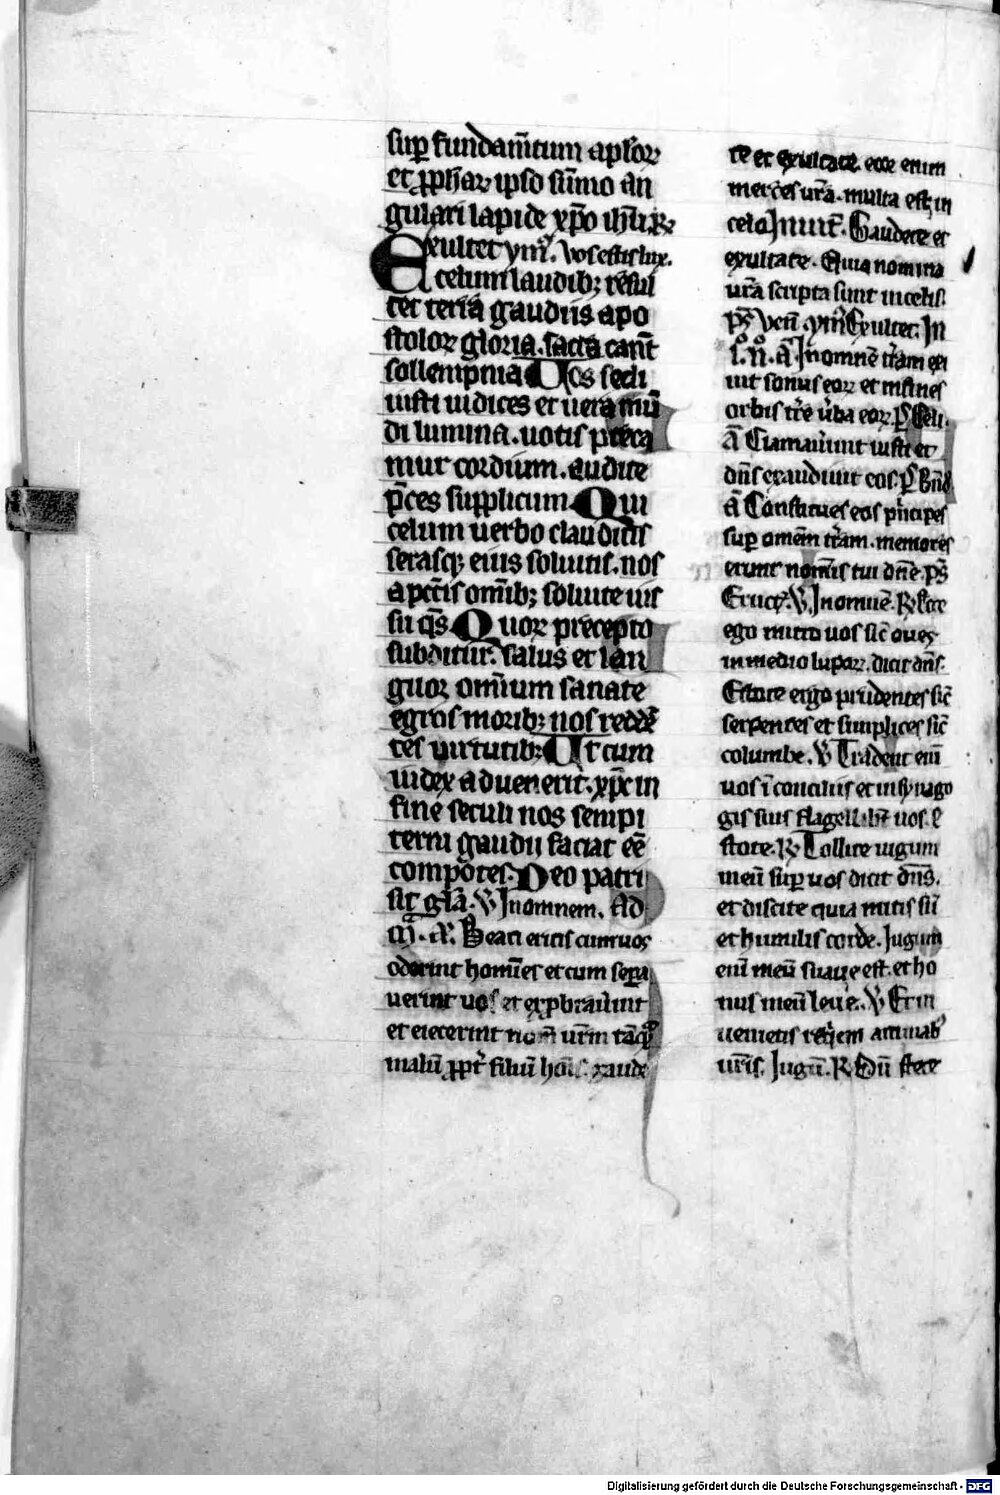 sup̱ fundam̄tum apl̄oꝝ
et ꝓphaꝝ ip̄so sūmo an
gulari lapide xp̄o ih̄u ℟
Exultet ym̄. Vos estis lux.
celum laudibꝫ resul
tet terra gaudiis apo
stoloꝝ gloria. sacra canūt
sollempnia Uos secli
iusti iudices et uera mū
di lumina. uotis preca
mur cordium. audite
p̄ces supplicum Qui
celum uerbo clauditis
serasqꝫ eius soluitis. nos
a pcc̄is om̄ibꝫ soluite ius
su qs̄. Quoꝝ precepto
subditur. salus et lan
guoꝝ omīum sanate
egros moribꝫ nos reddē
tes uirtutibꝫ Ut cum
iudex aduenerit. xp̄c in
fine seculi nos sempi
terni gaudii faciat eē
compotes. Deo patri
sit gl̄a. ℣ In omnem. Ad
m̄. a. Beati eritis cum uos
oderint homīes et cum sepa
uerint uos et exprobrauīnt
et eiecerint nom̄ ur̄m tāqꝫ
malū ꝓpt̄ filiū hoīs. gaude
te et exultate. ecce enim
merces ur̄a. multa est in
celo In euūt. Gaudete et
exultate. Quia nomina
ur̄a scripta sunt in celis.
ps̄ Ven̄. ym̄ Exultet. In
i. n̄. a. In omnē t̄ram exi
uit sonus eoꝝ et in fines
orbis tr̄e ūba eoꝝ. ps̄ Celi.
a Clamauīunt iusti et
dn̄s exaudiuit eos. ps̄ Bn̄d
a Constitues eos p̄ncipes
sup̱ omēm t̄ram. memores
erunt nomīs tui dn̄e. ps̄
Eruct̄. ℣. In omnē. ℟ Ecce
ego mitto uos sic̄ oues
in medio lupoꝝ. dicit dn̄s.
Estote ergo prudentes sic̄
serpentes et simplices sic̄
columbe. ℣ Tradent enī
uos ī conciliis et in synago
gis suis flagellab̄t uos. E
stote. ℟ Tollite iugum
meū sup̱ uos dicit dn̄s.
et discite quia mitis sū
et humilis corde. Jugum
enī meū suaue est. et ho
nus meū leue. ℣ Et in
uenietis reqͥem animabꝰ
ur̄is. Jugū. ℟ Dū stete
Digitalisierung gefördert durch die Deutsche Forschungsgemeinschaft - DFG